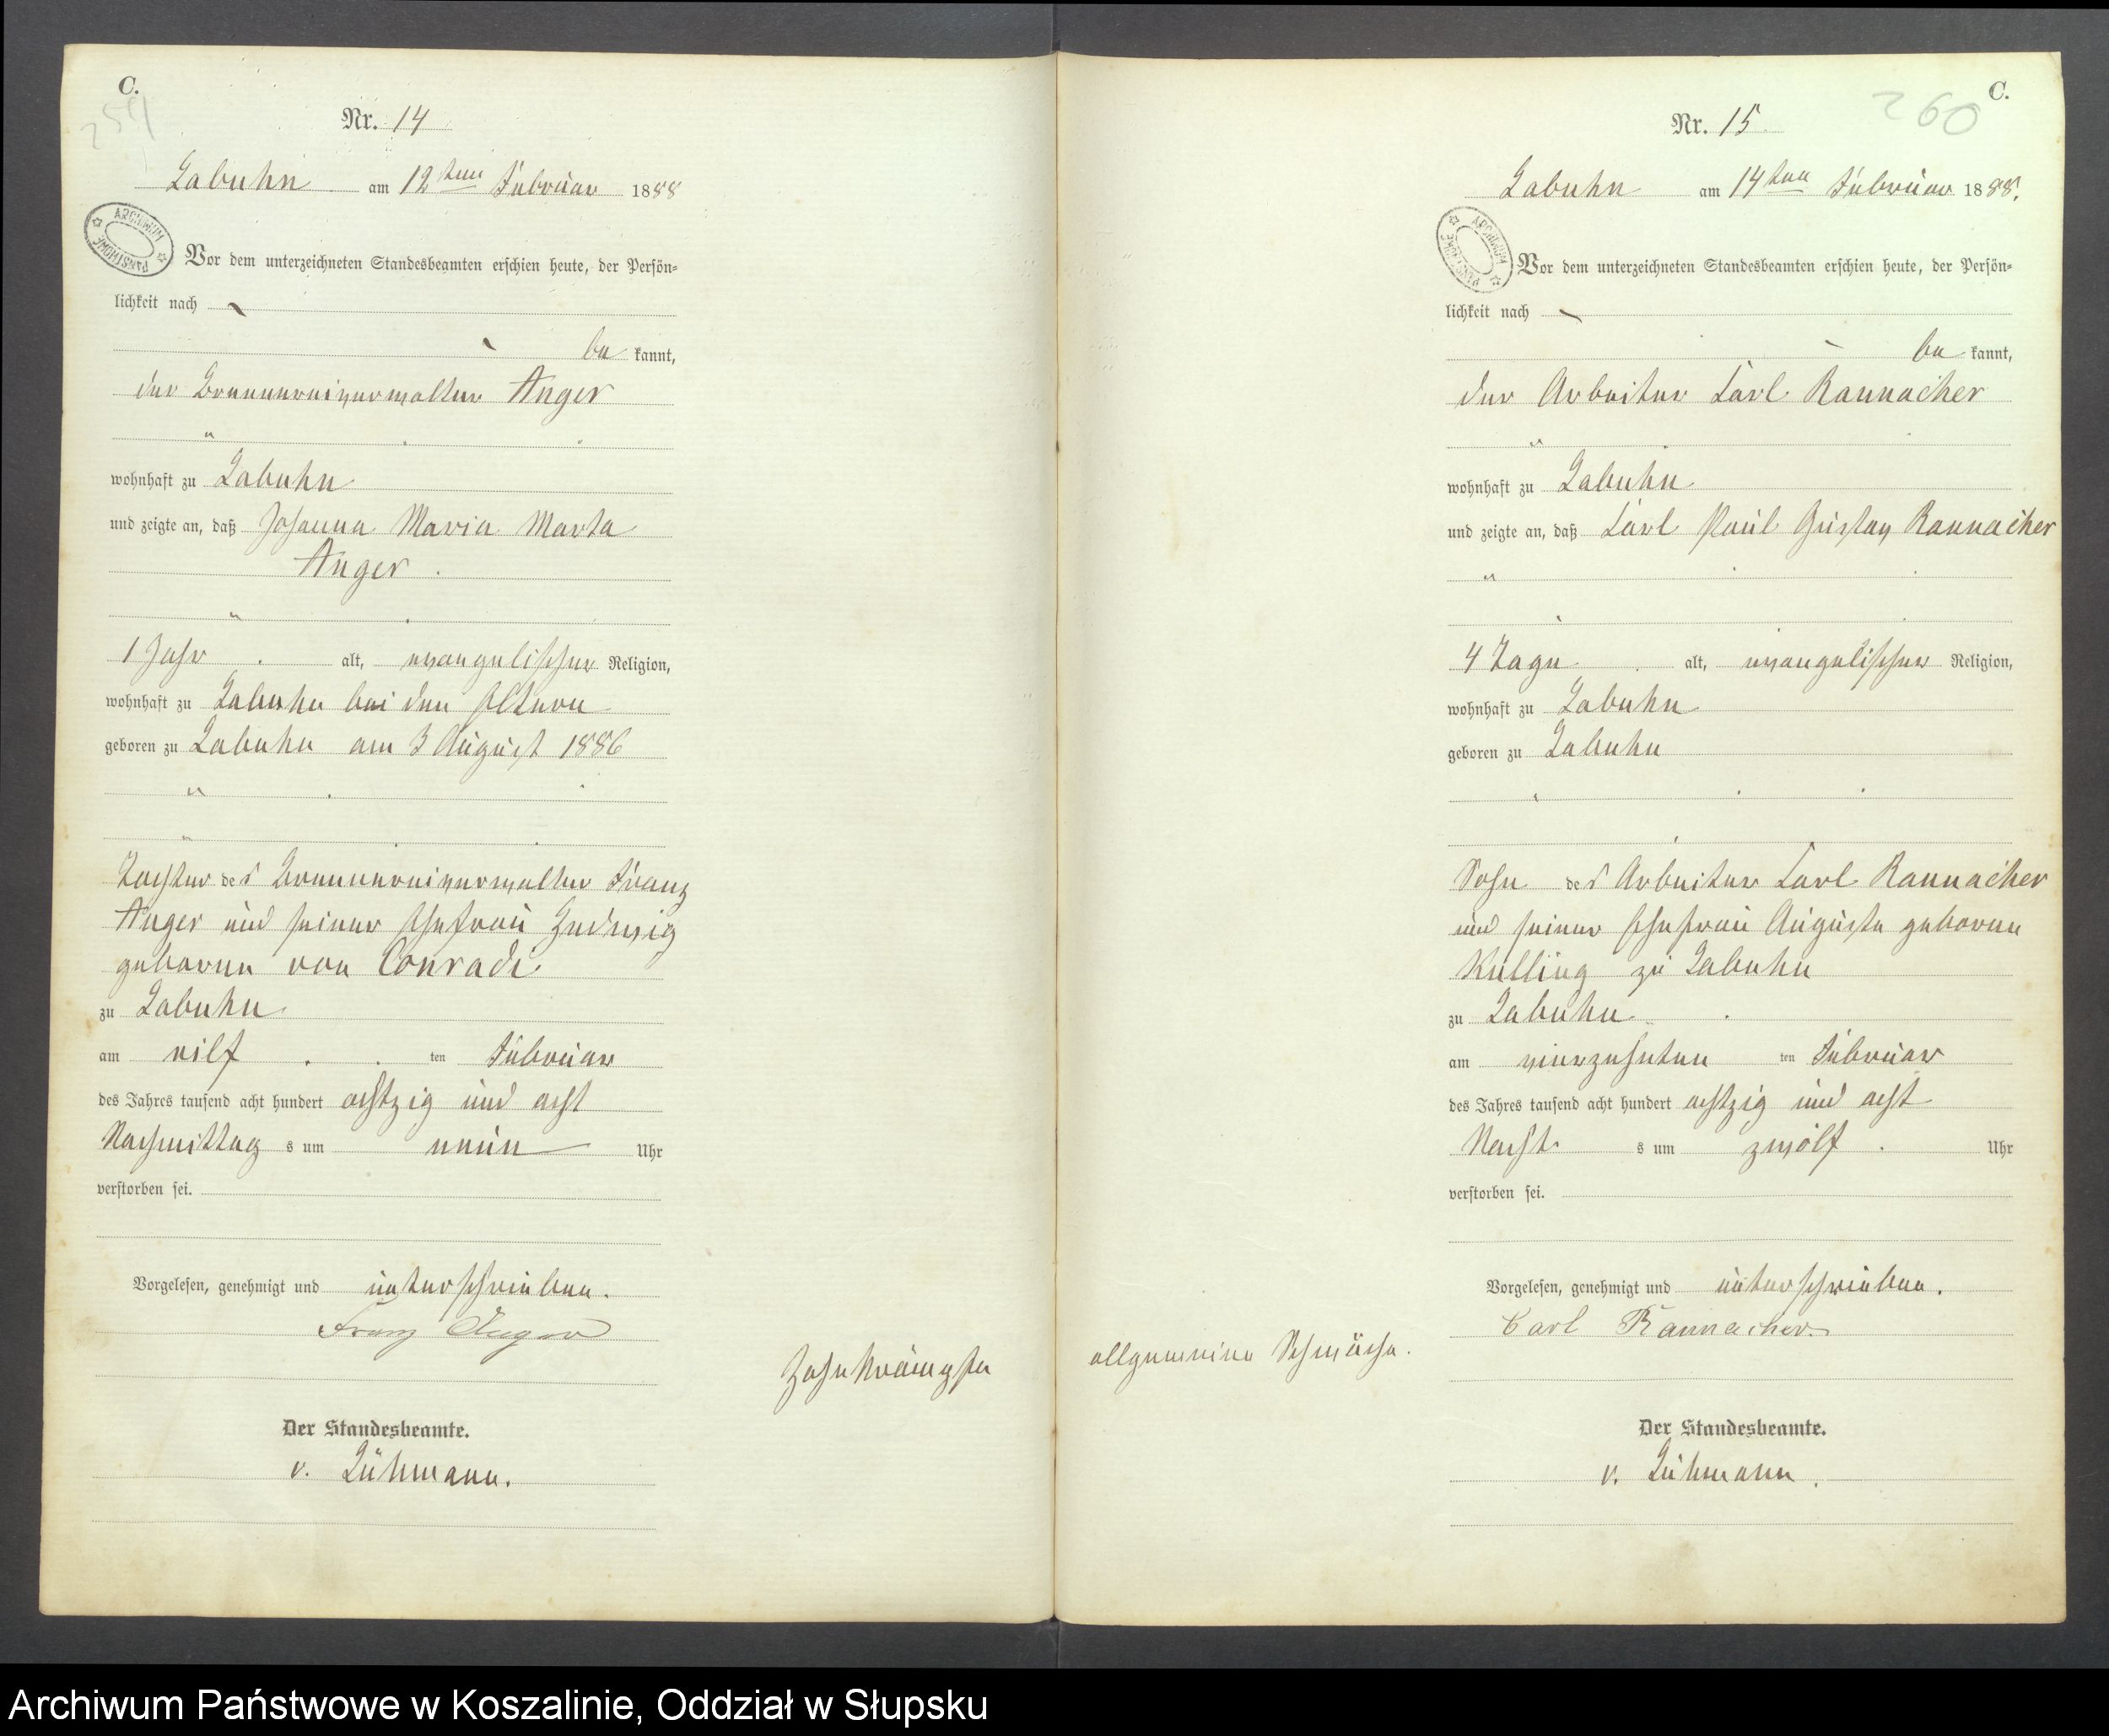 C.
259
Nr. 14
Labuhn am 12ten Februar 1888
ARCHIWUM PAŃSTWOWE
Vor dem unterzeichneten Standesbeamten erschien heute, der Persön-
lichkeit nach
be kannt,
der Brennereiverwalter Anger
wohnhaft zu Labuhn
und zeigte an, daß Johanna Maria Marta
Anger.
1 Jahr alt, evangelischer Religion,
wohnhaft zu Labuhn bei den Eltern
geboren zu Labuhn am 3 August 1886
Tochter des Brennereiverwalter Franz
Anger und seiner Ehefrau Hedwig
geborene von Conradi
zu Labuhn
am eilf ten Februar
des Jahres tausend acht hundert achtzig und acht
Nachmittag s um neun Uhr
verstorben sei.
Vorgelesen, genehmigt und unterschrieben.
Franz Anger
Zahnkrämpfe
Der Standesbeamte.
v. Lühmann.
C.
260
Nr. 15
Labuhn am 14ten Februar 1888.
ARCHIWUM PAŃSTWOWE
Vor dem unterzeichneten Standesbeamten erschien heute, der Persön-
lichkeit nach
be kannt,
der Arbeiter Carl Rannacher
wohnhaft zu Labuhn
und zeigte an, daß Carl Paul Gustav Rannacher
4 Tage alt, evangelischer Religion,
wohnhaft zu Labuhn
geboren zu Labuhn
Sohn des Arbeiter Carl Rannacher
und seiner Ehefrau Auguste geborene
zu Labuhn
zu Labuhn
am vierzehnten ten Februar
des Jahres tausend acht hundert achtzig und acht
Nacht s um zwölf Uhr
verstorben sei.
Vorgelesen, genehmigt und unterschrieben.
Carl Rannacher
allgemeine Schwäche.
Der Standesbeamte.
v. Lühmann.
Archiwum Państwowe w Koszalinie, Oddział w Słupsku